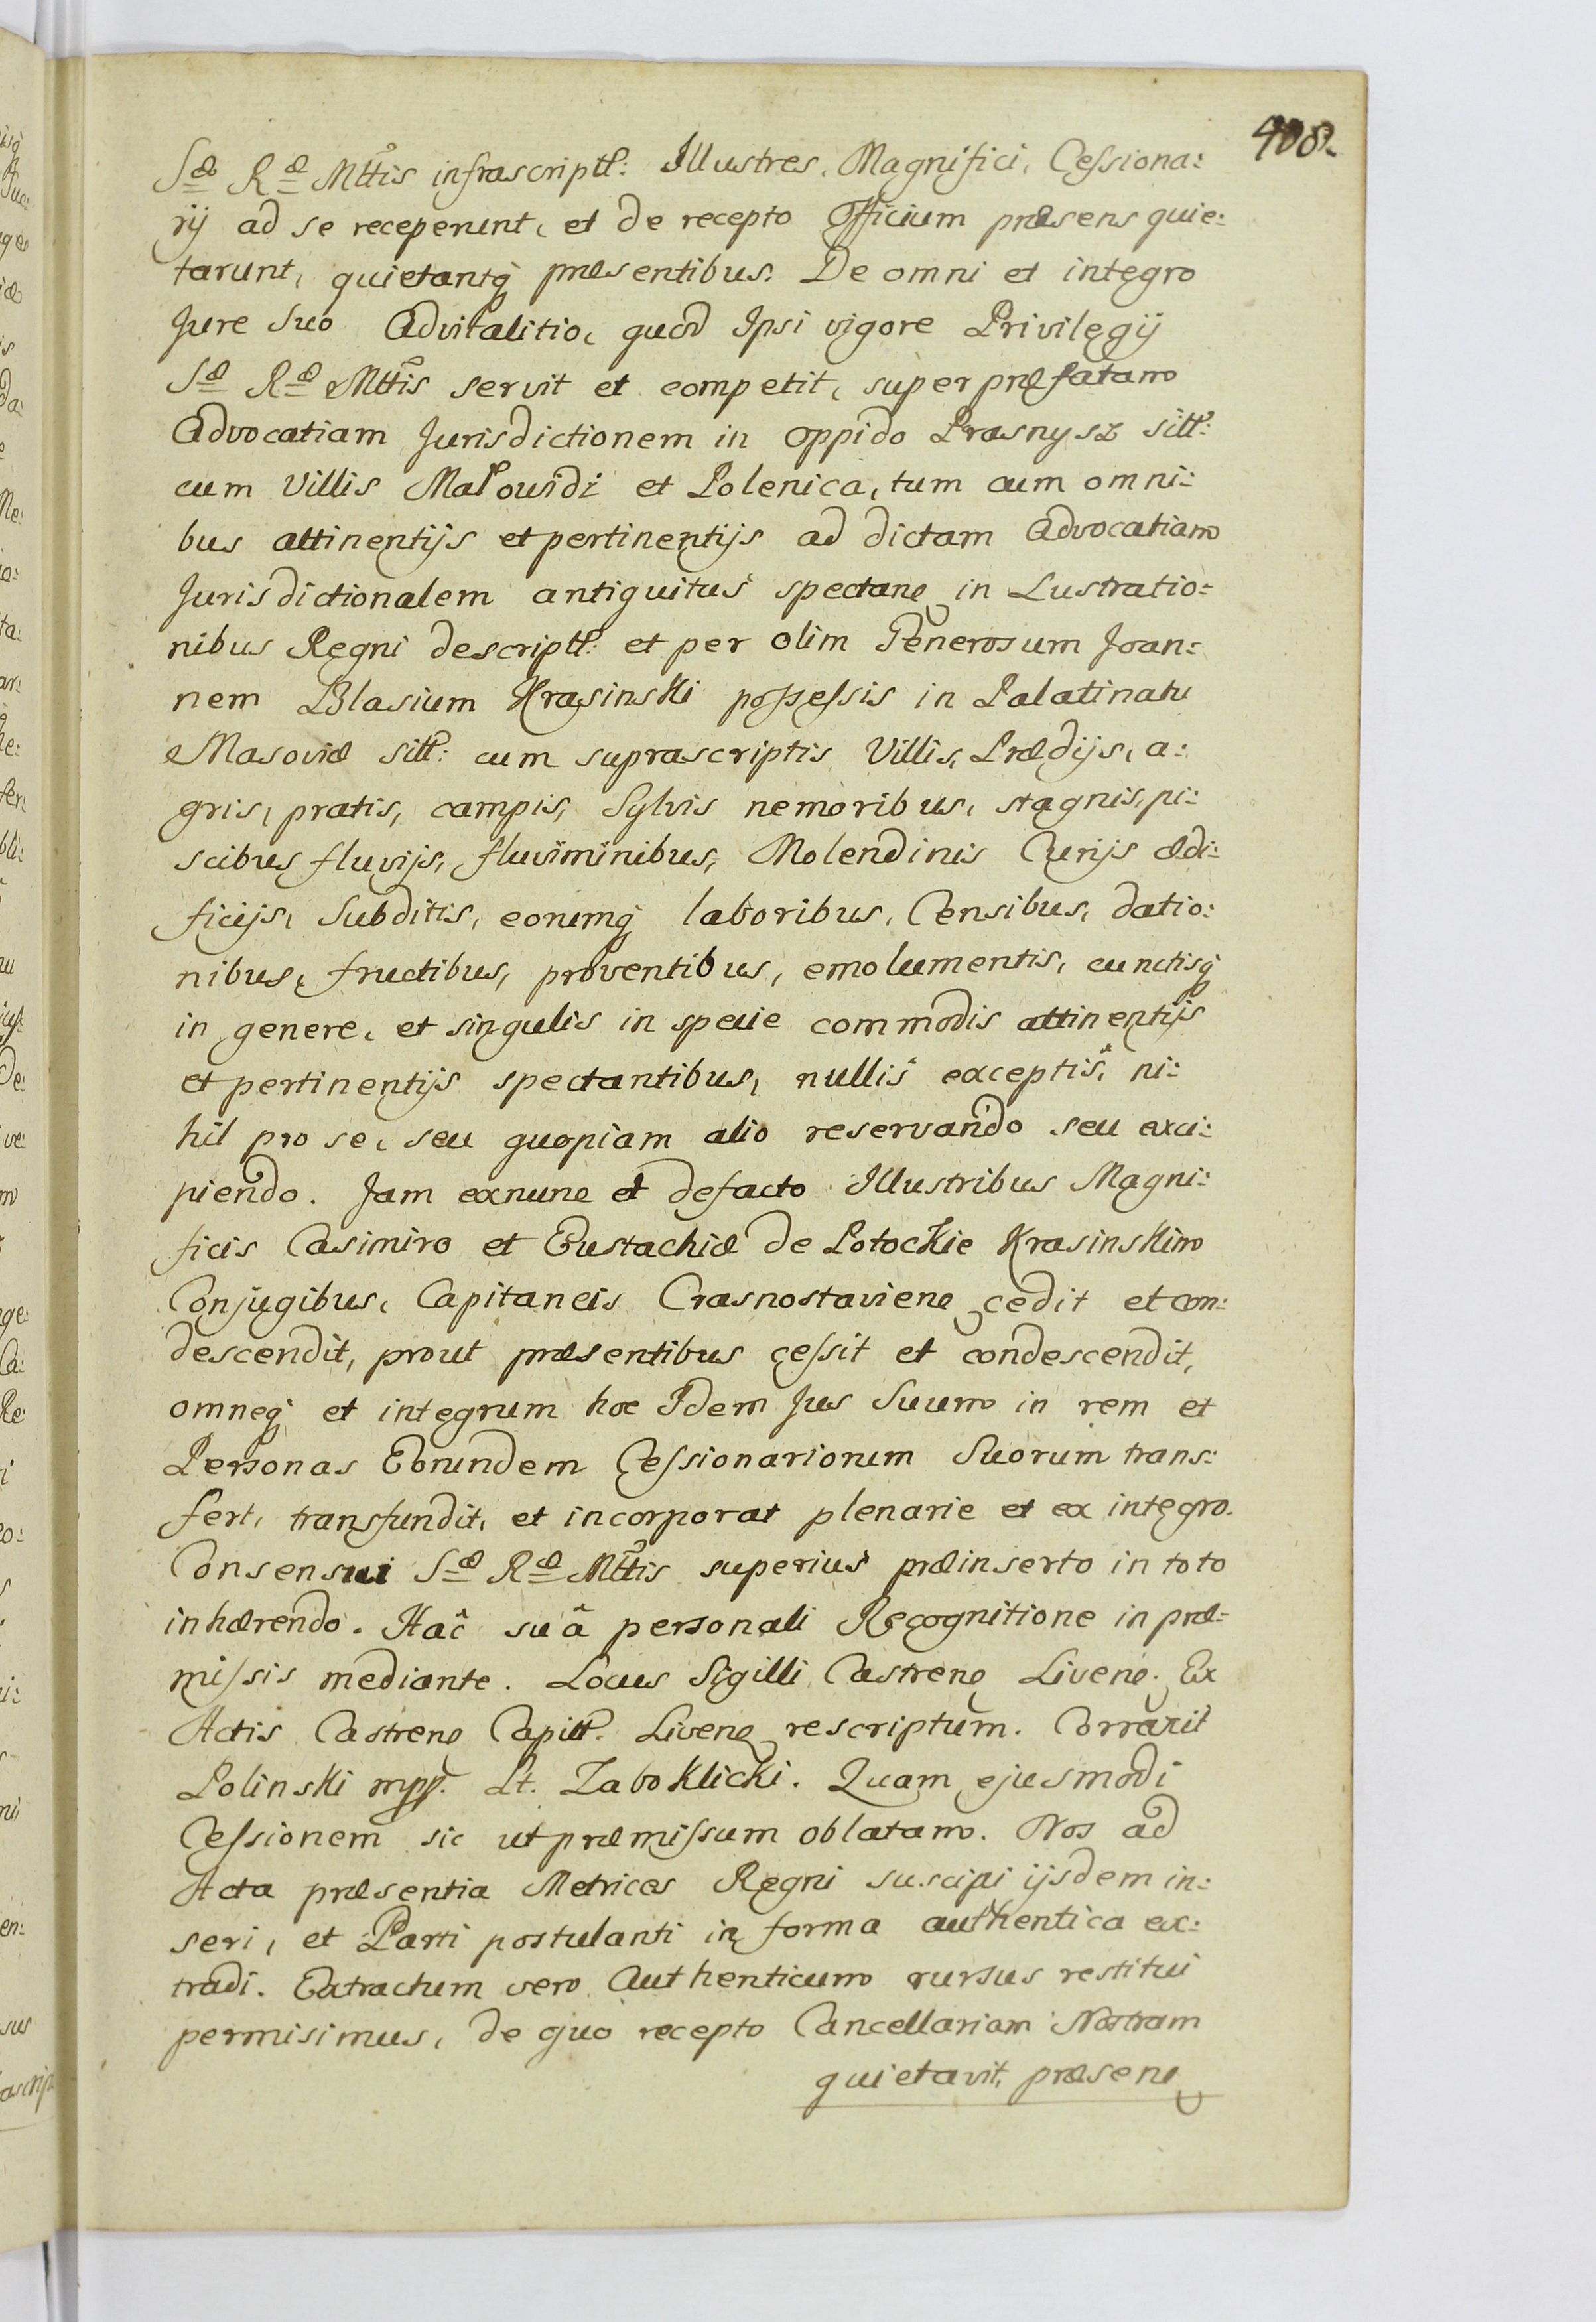 408.
Sæ Ræ Mttis infrascriptt: Illustres, Magnifici, Cessiona:
rij ad se receperunt, et de recepto Officium præsens quie:
tarunt, quietantq præsentibus. De omni et integro
Jure suo Advitalitio, quod Ipsi vigore Privilegij
Sæ Ræ Mttis servit et competit, super præfatam
Advocatiam Jurisdictionem in oppido Prasnysz sitt:
cum Villis Małowidz et Polenica, tum cum omni:
bus attinentijs et pertinentijs ad dictam Advocatiam
Jurisdictionalem antiquitus spectanę in Lustratio:
nibus Regni descriptt: et per olim Generosum Joan:
nem Blasium Krasinski possessis in Palatinatu
Masoviæ sitt: cum suprascriptis Villis, Prædijs, a:
gris, pratis, campis, Sylvis nemoribus, stagnis, pi:
scibus fluvijs, fluviminibus, Molendinis Curijs ædi:
ficijs, Subditis, eorumq laboribus, Censibus, datio:
nibus, fructibus, proventibus, emolumentis, cunctisq
in genere, et singulis in specie commodis attinentijs
et pertinentijs spectantibus, nullis exceptis, ni:
hil pro se, seu quopiam alio reservando seu exci:
piendo. Jam exnunc et defacto Illustribus Magni:
ficis Casimiro et Eustachiæ de Potockie Krasinskim
Conjugibus, Capitaneis Crasnostavienę cedit et con:
descendit, prout præsentibus cessit et condescendit,
omneq et integrum hoc Idem Jus Suum in rem et
Personas Eorundem Cessionariorum Suorum trans:
fert, transfundit, et incorporat plenarie et ex integro.
Consensui Sæ Ræ Mttis superius præinserto in toto
inhærendo. Hac suâ personali Recognitione in præ:
missis mediante. Locus Sigilli Castrenę Livenę. Ex
Actis Castrenę Capitt. Livenę rescriptum. Correxit
Polinski mpp. Lt. Zaboklicki. Quam ejusmodi
Cessionem sic ut præmissum oblatam. Nos ad
Acta præsentia Metrices Regni suscipi ijsdem in:
seri, et Parti postulanti in forma authentica ex:
tradi. Extractum vero Authenticum rursus restitui
permisimus, de quo recepto Cancellariam Nostram
quietavit, præsenę